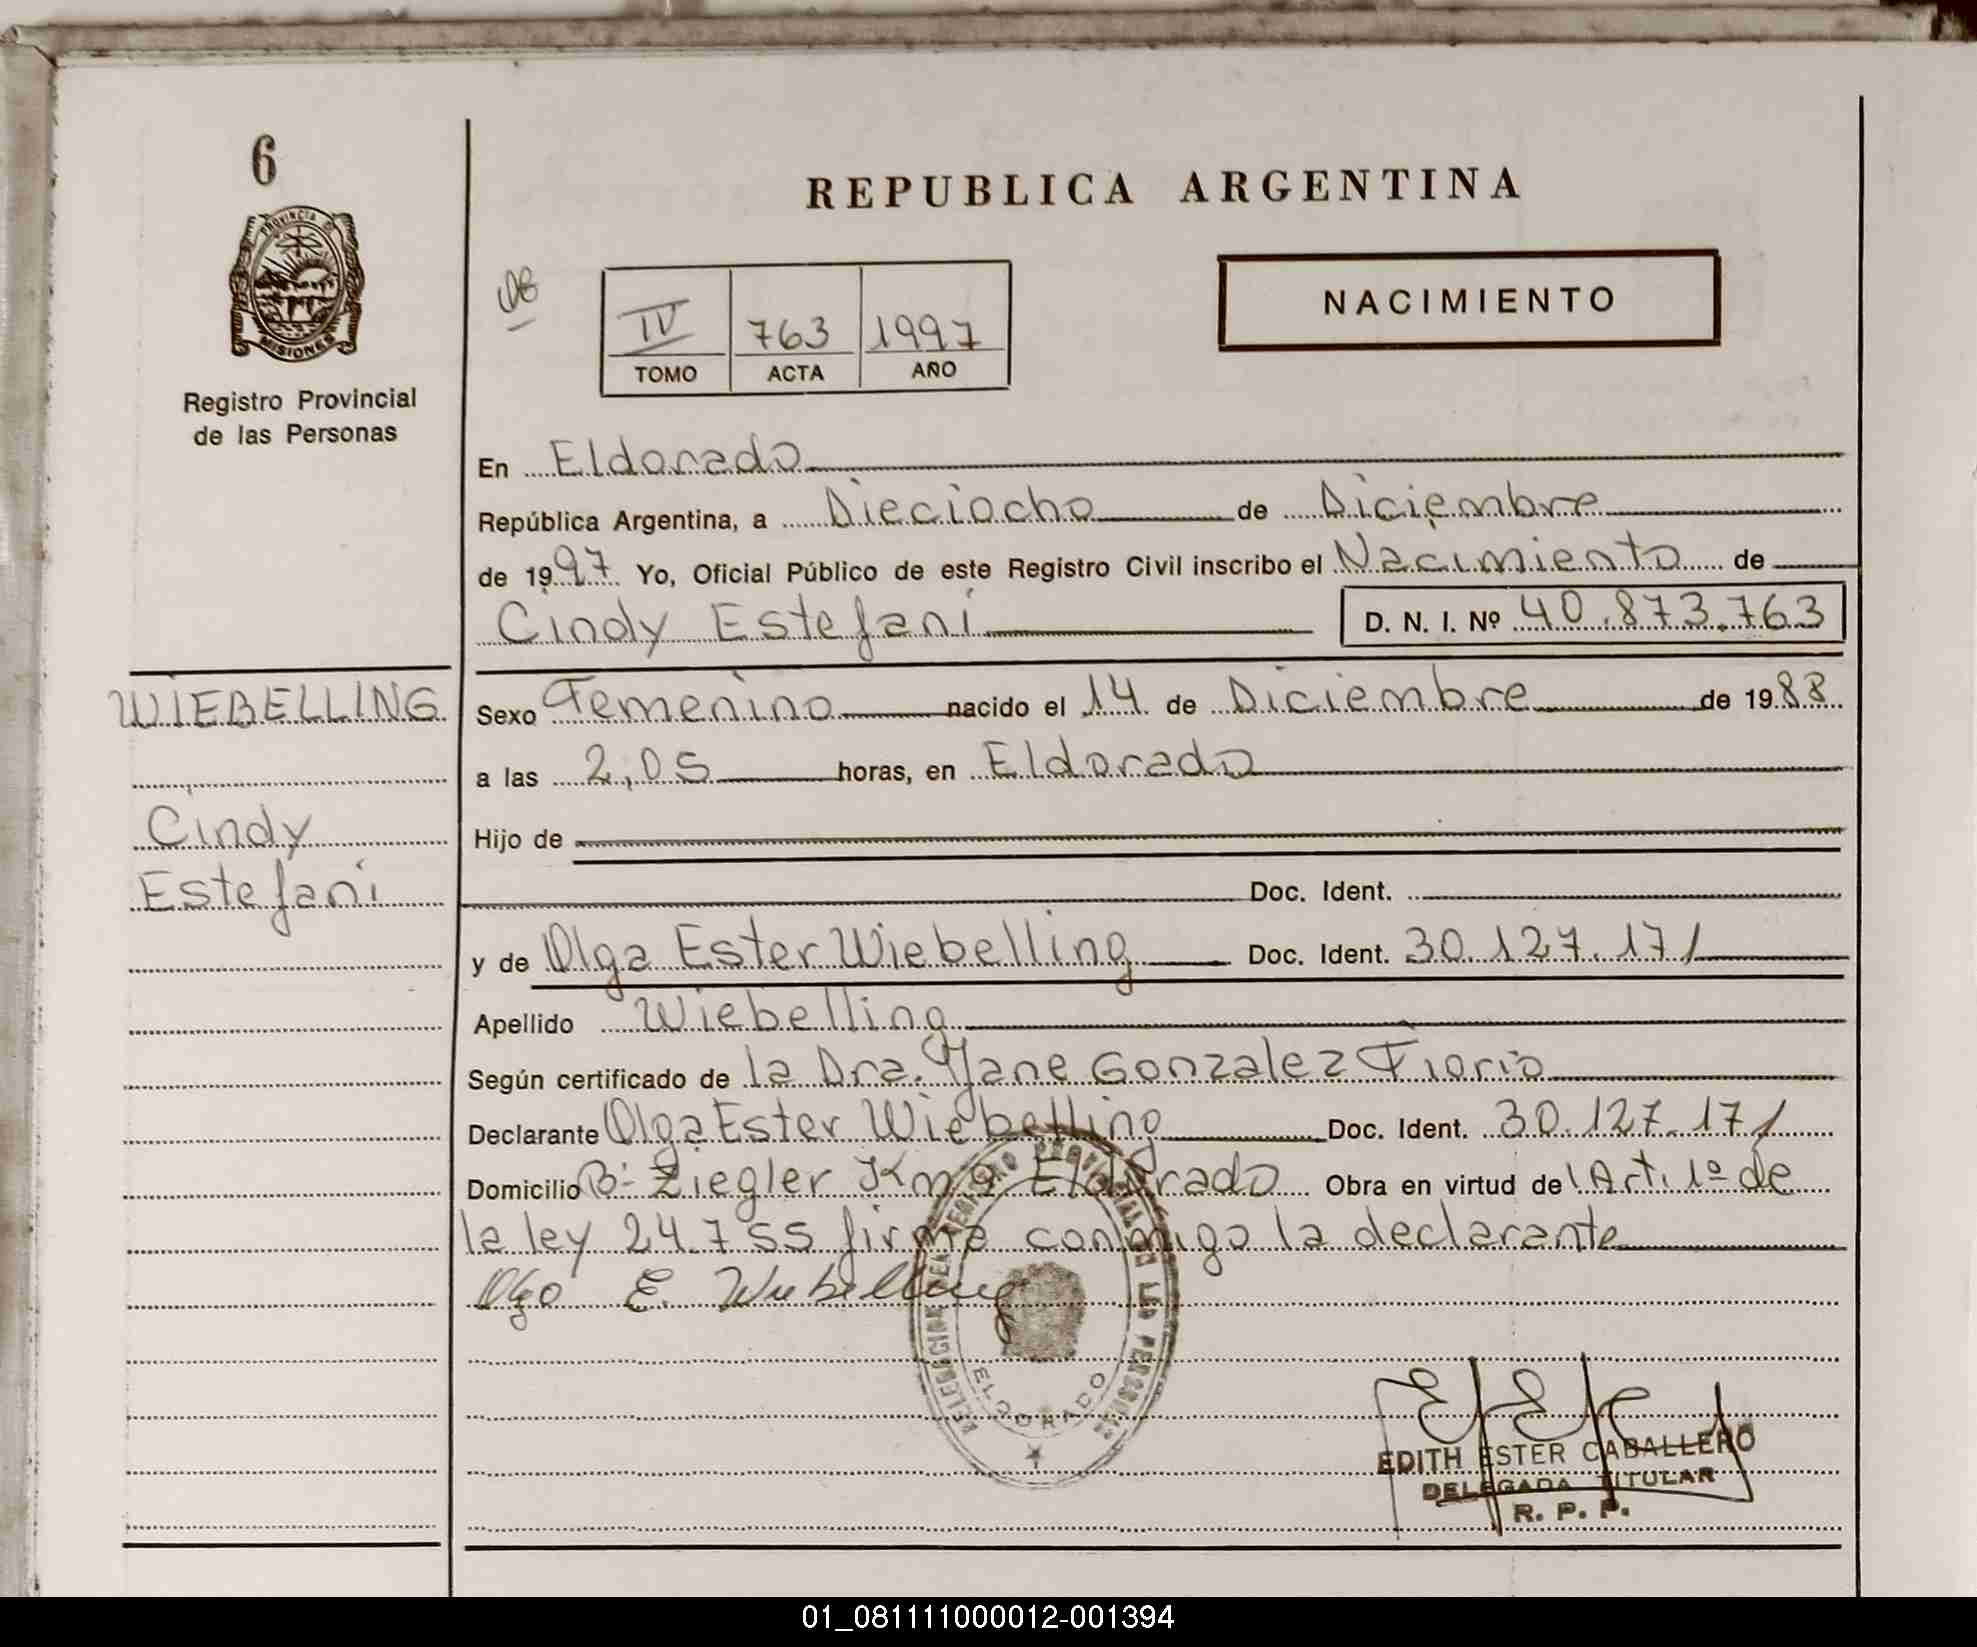 6
PROVINCIA DE
MISIONES
Registro Provincial
de las Personas
REPUBLICA ARGENTINA
IV 763 1997
TOMO ACTA AÑO
NACIMIENTO
En Eldorado
República Argentina, a Dieciocho de Diciembre
de 1997 Yo, Oficial Público de este Registro Civil inscribo el Nacimiento de
Cindy Estefani D. N. I. Nº 40.873.763
WIEBELLING
Cindy
Estefani
Sexo Femenino nacido el 14 de Diciembre de 1988
a las 2,05 horas, en Eldorado
Hijo de
Doc. Ident.
y de Olga Ester Wiebelling Doc. Ident. 30.127.171
Apellido Wiebelling
Según certificado de la Dra. Yane Gonzalez Fiorio
Declarante Olga Ester Wiebelling Doc. Ident. 30.127.171
Domicilio Bº Ziegler Km 9 Eldorado Obra en virtud del Art. 1º de
la ley 24.755 firma conmigo la declarante
Olga E. Wiebelling
DELEGACION DEL REGISTRO PROVINCIAL DE LAS PERSONAS
ELDORADO
EDITH ESTER CABALLERO
DELEGADA TITULAR
R. P. P.
01_081111000012-001394